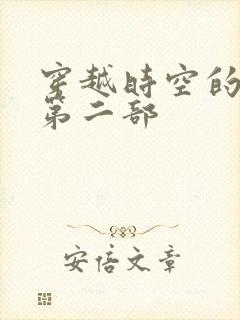 穿越時空的
第二部
安倍文章